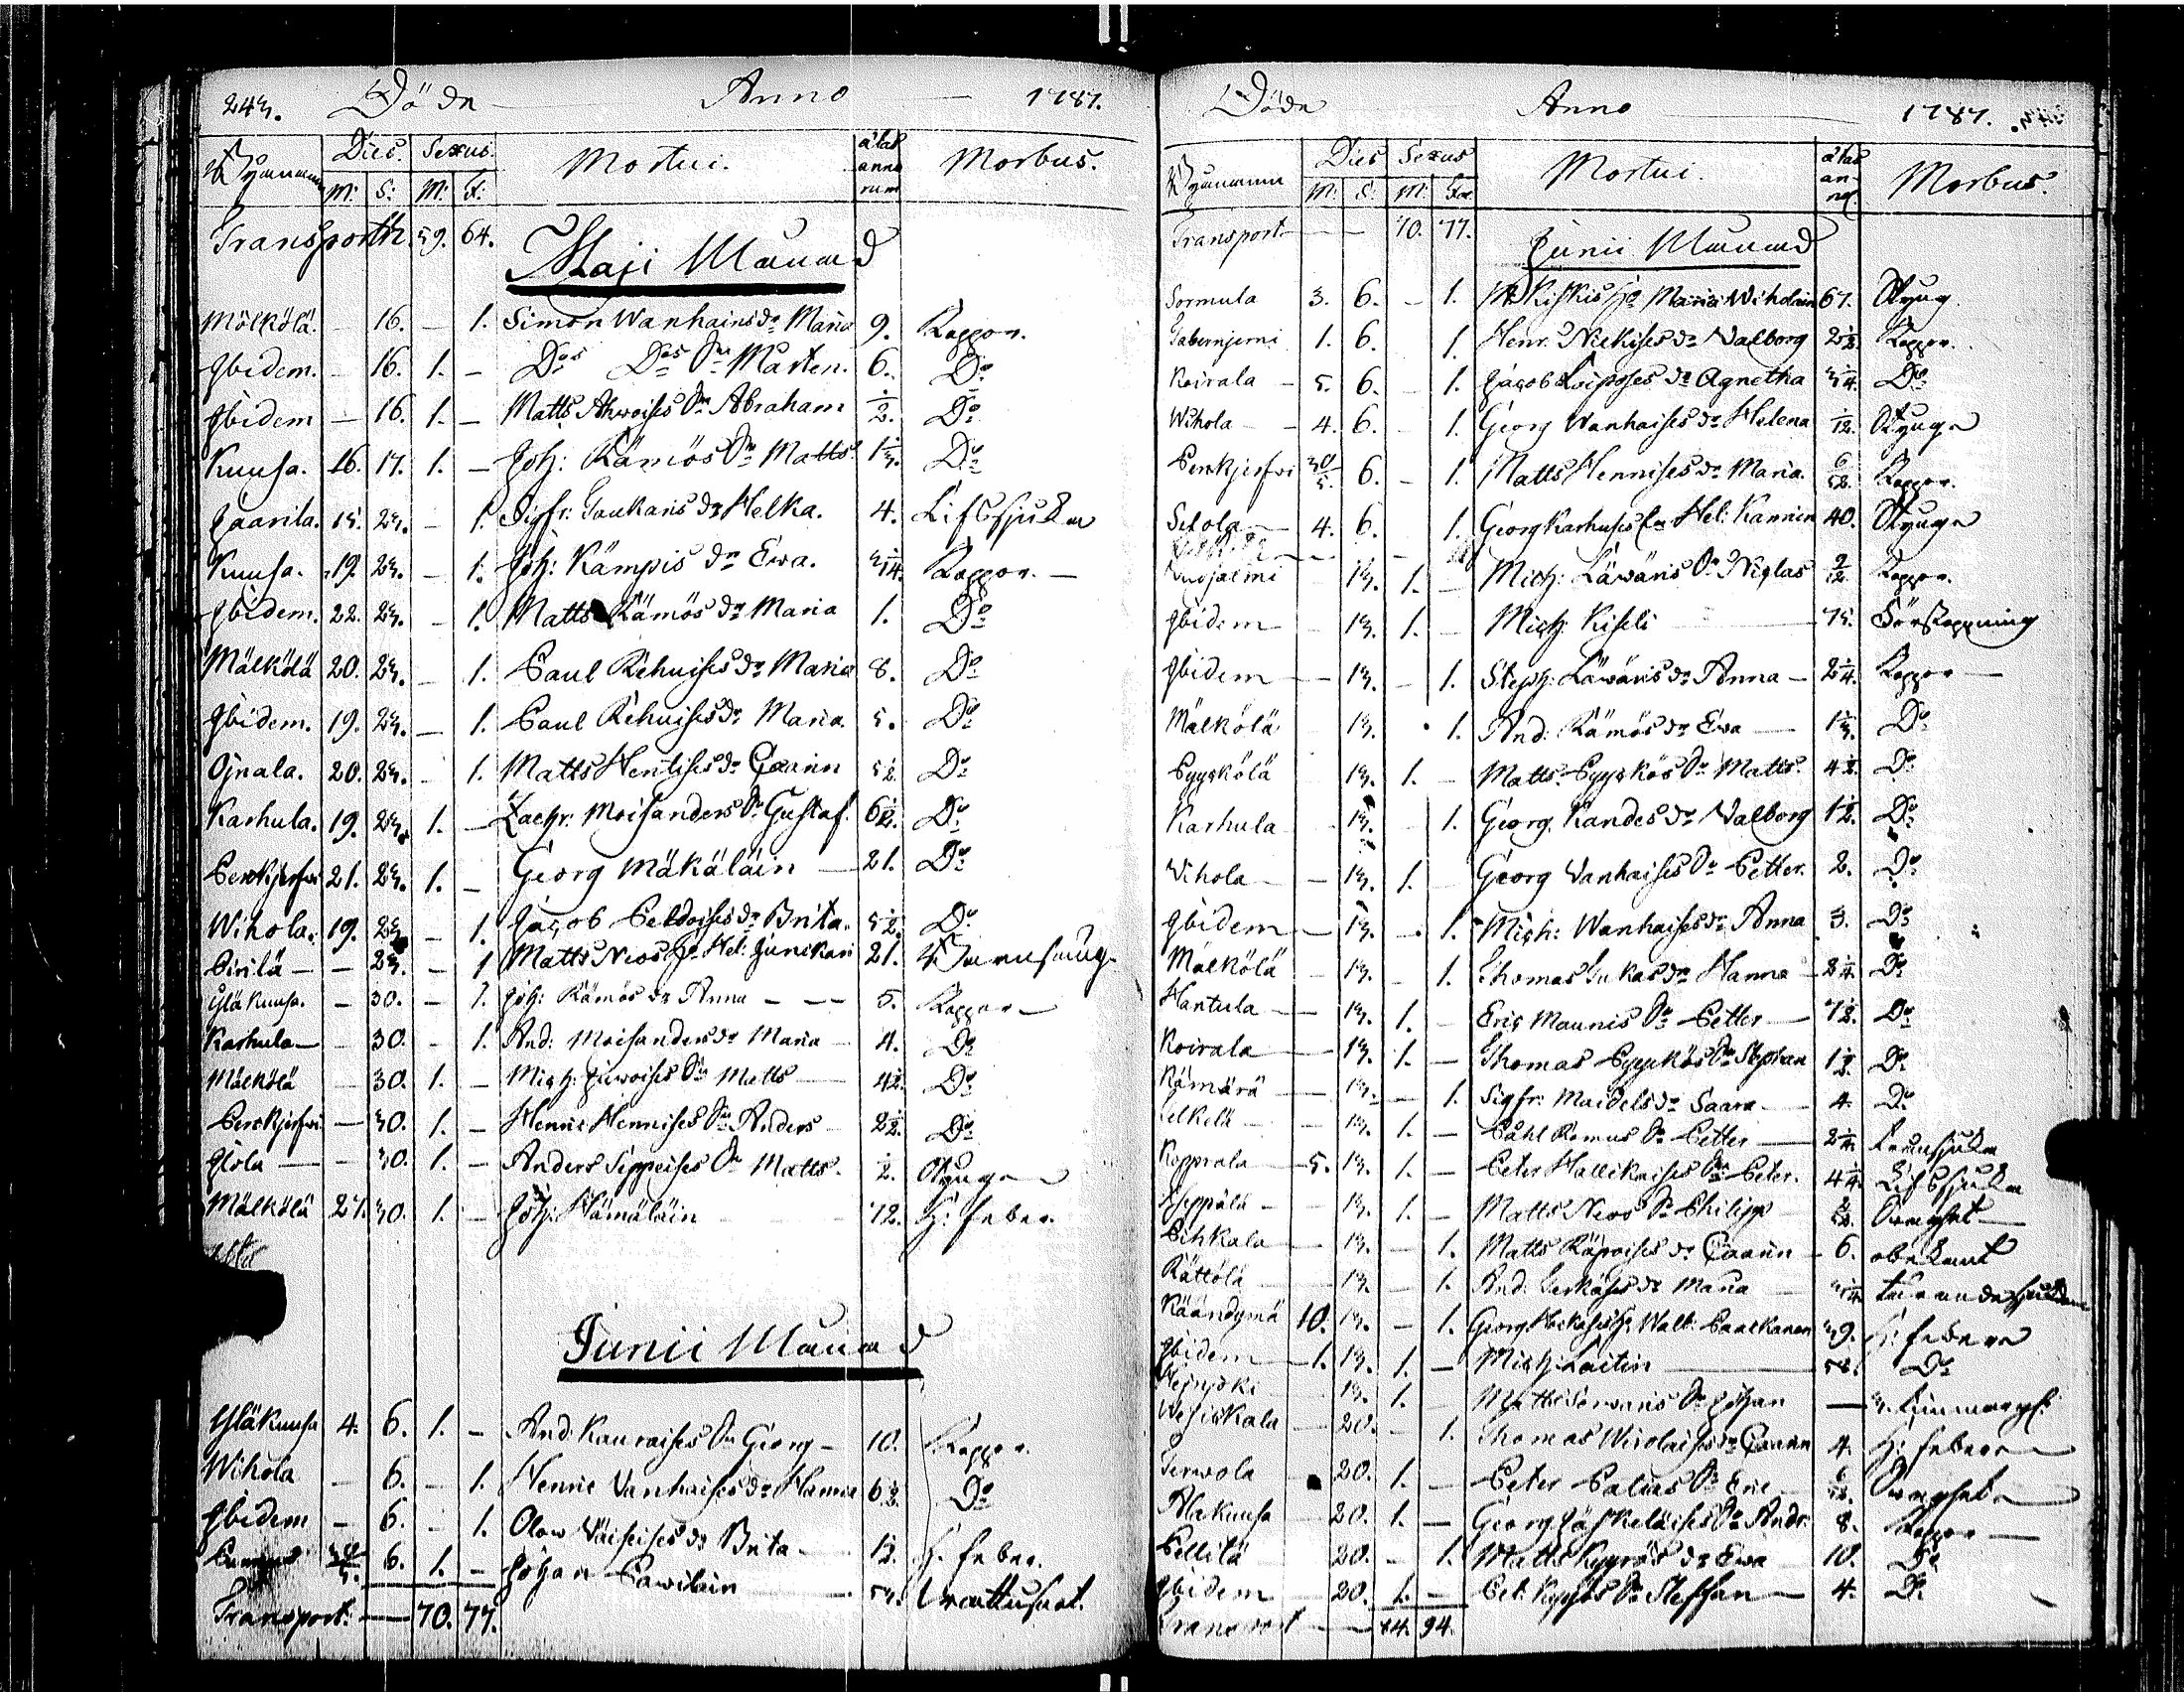 243. Döde Anno 1787.
Dies. Sexus. Mortui. ätat annorum Morbus.
M: S: M: F:
Transporth. 59. 64.
Maji Månad
Mölkölä. - 16. - 1. Simon Wanhains dr Maria 9. Koppor.
Ibidem. - 16. 1. - Dos Dos Sn Mårten. 6. Do
Ibidem - 16. 1. - Matts Ahwoises Sn Abraham 1/2. Do
Kuusa. 16. 17. 1. - Joh: Rämös Sn Matts. Do
Jaarila. 15. 23. - 1. Sigfr: Laukans dr Helka. 4. Lifssjuka
Kuusa. 19. 23. - 1. Joh: Kämpis dr Ewa. Koppor. -
Ibidem. 22. 23. - 1. Matts Rämös dr Maria 1. Do
Mälkölä 20. 23. - 1. Paul Rehuises dr Maria 8. Do
Ibidem. 19. 23. - 1. Paul Rehuises dr Maria. 5. Do
Ojnala. 20. 23. - 1. Matts Hentises dr Caarin Do
Karhula. 19. 23. 1. - Zachr: Moisanders Sn Gustaf. 6 1/2. Do
Perkjerfwi 21. 23. 1. - Georg Mäkäläin - 21. Do
Wihola. 19. 23. - 1. Jacob Peldoises dr Brita. 5 1/2. Do
Pirilä - - 23. - 1 Matts Nios H. Hel: Junikari 21. Barnsäng.
Yläkuusa. - 30. - 1. Joh: Rämös dr Anna - - - 5. Koppor -
Karhula - - 30. - 1. And: Moisanders dr Maria - 4. Do
Mälkölä - 30. 1. - Mich: Juwoises Sn Matts 4 1/2. Do
Perkjerfwi. - 30. 1. - Henric Hennises Sn Anders - 2 1/2. Do
Ilola - - 30. 1. - Anders Sippoises Sn Matts. 1/2. Styng
Mälkölä 27. 30. 1. - Joh: Hämäläin 72. H: feber.
Junii Månad
Yläkuusa 4. 6. 1. - And: Kauraises Sn Georg - 10. Koppor.
Wihola - 6. - 1. Henric Vanhaises dr Hanna 6 1/2. Do
Ibidem - 6. - 1. Olow Väiseises dr Brita - 1/2. H. feber.
6. 1. - Johan Pawilain 53. Vrattusot.
Transport. - 70. 77.
Döde Anno 1787.
Dies Sexus Mortui. ätas Morbus.
M: S: M: Foe
Transport - - 70. 77.
Junii Månad
Sormula 3. 6. - 1. Kiskis H. Maria Wiholain 67. Styng.
Tabernjemi 1. 6. 1. Henr. Nickises dr Valborg 2 1/2. Koppor.
Koirala - 5. 6. - 1. Jacob Loiposes dr Agnetha 3 1/4. Do
Wihola - - 4. 6. - 1. Georg Wanhaises dr Helena 1/12. Styng
Perkjerfwi 30/5. 6. - 1. Matts Hennises dr Maria. 6/52. Koppor.
Setola - 4. 6. 1. Georg Karhuses Hel: Kannin 40. Styng
Kuojaemi 13. 1. - Mich: Läwäns Sn Niclas 9/12. Koppor.
Ibidem - 13. 1. - Mich: Kiseli 75. Förstoppning
Ibidem - 13. - 1. Steph: Läwäns dr Anna - 2 1/4. Koppor -
Mälkölä 13. 1. And: Rämös dr Ewa - Do
Pyyskölä 13. 1. - Matts. Pyyskös Sn Matts. 4 1/2. Do
Karhula 13. - 1. Georg. Kandes dr Valborg 1 1/2. Do
Vihola - - 13. 1. - Georg Vanhaises Sn Petter. 2. Do
Ibidem - 13. - 1. Mich: Wanhaises dr Anna 3. Do
Mälkölä - 13. - 1. Thomas Lukas dr Hanna - 2 1/4. Do
Hantula - 13. 1. - Eric Maunis Sn Petter - 7 1/2. Do
Koirala - 13. 1. - Thomas Pyykös Sn Stephan 1 1/2. Do
Kämärä - 13. - 1. Sigfr: Maidels dr Saara - 4. Do
Lelkelä - - 13. 1. - Påhl Romus Sn Petter - 2 1/4.
Kopprala - 5. 13. 1. - Peter Hallikaises Sn Peter. 4 1/4. Lifssjuka
Seppälä - 13. 1. - Matts Nios Sn Philipp
Pihkala - 13. - 1. Matts Räpoises dr Caarin - 6. obekant
Rättölä - 13. - 1. And: dr Maria - tärande sjukdom
Käändymä 10. 13. - 1. Georg Walb: Paakanen 39. H: feber
Ibidem - 1. 13. 1. - Mich: Laitin - 58. Do
13. 1. - Matts Sn Johan -
Wesiskala - 20. - 1. Thomas Wirolaises dr Caarin 4. H: feber -
Terwola 20. 1. - Peter Sn Eric
Alakuusa - 20. 1. - Georg Jäskeläises Sn Andr: 8. Koppor -
Pellilä 20. - 1. Matts Kyyrös dr Ewa 10. Do
Ibidem - 20. 1. - Pet: Sn Steffan - 4. Do
Transport - - 84. 94.